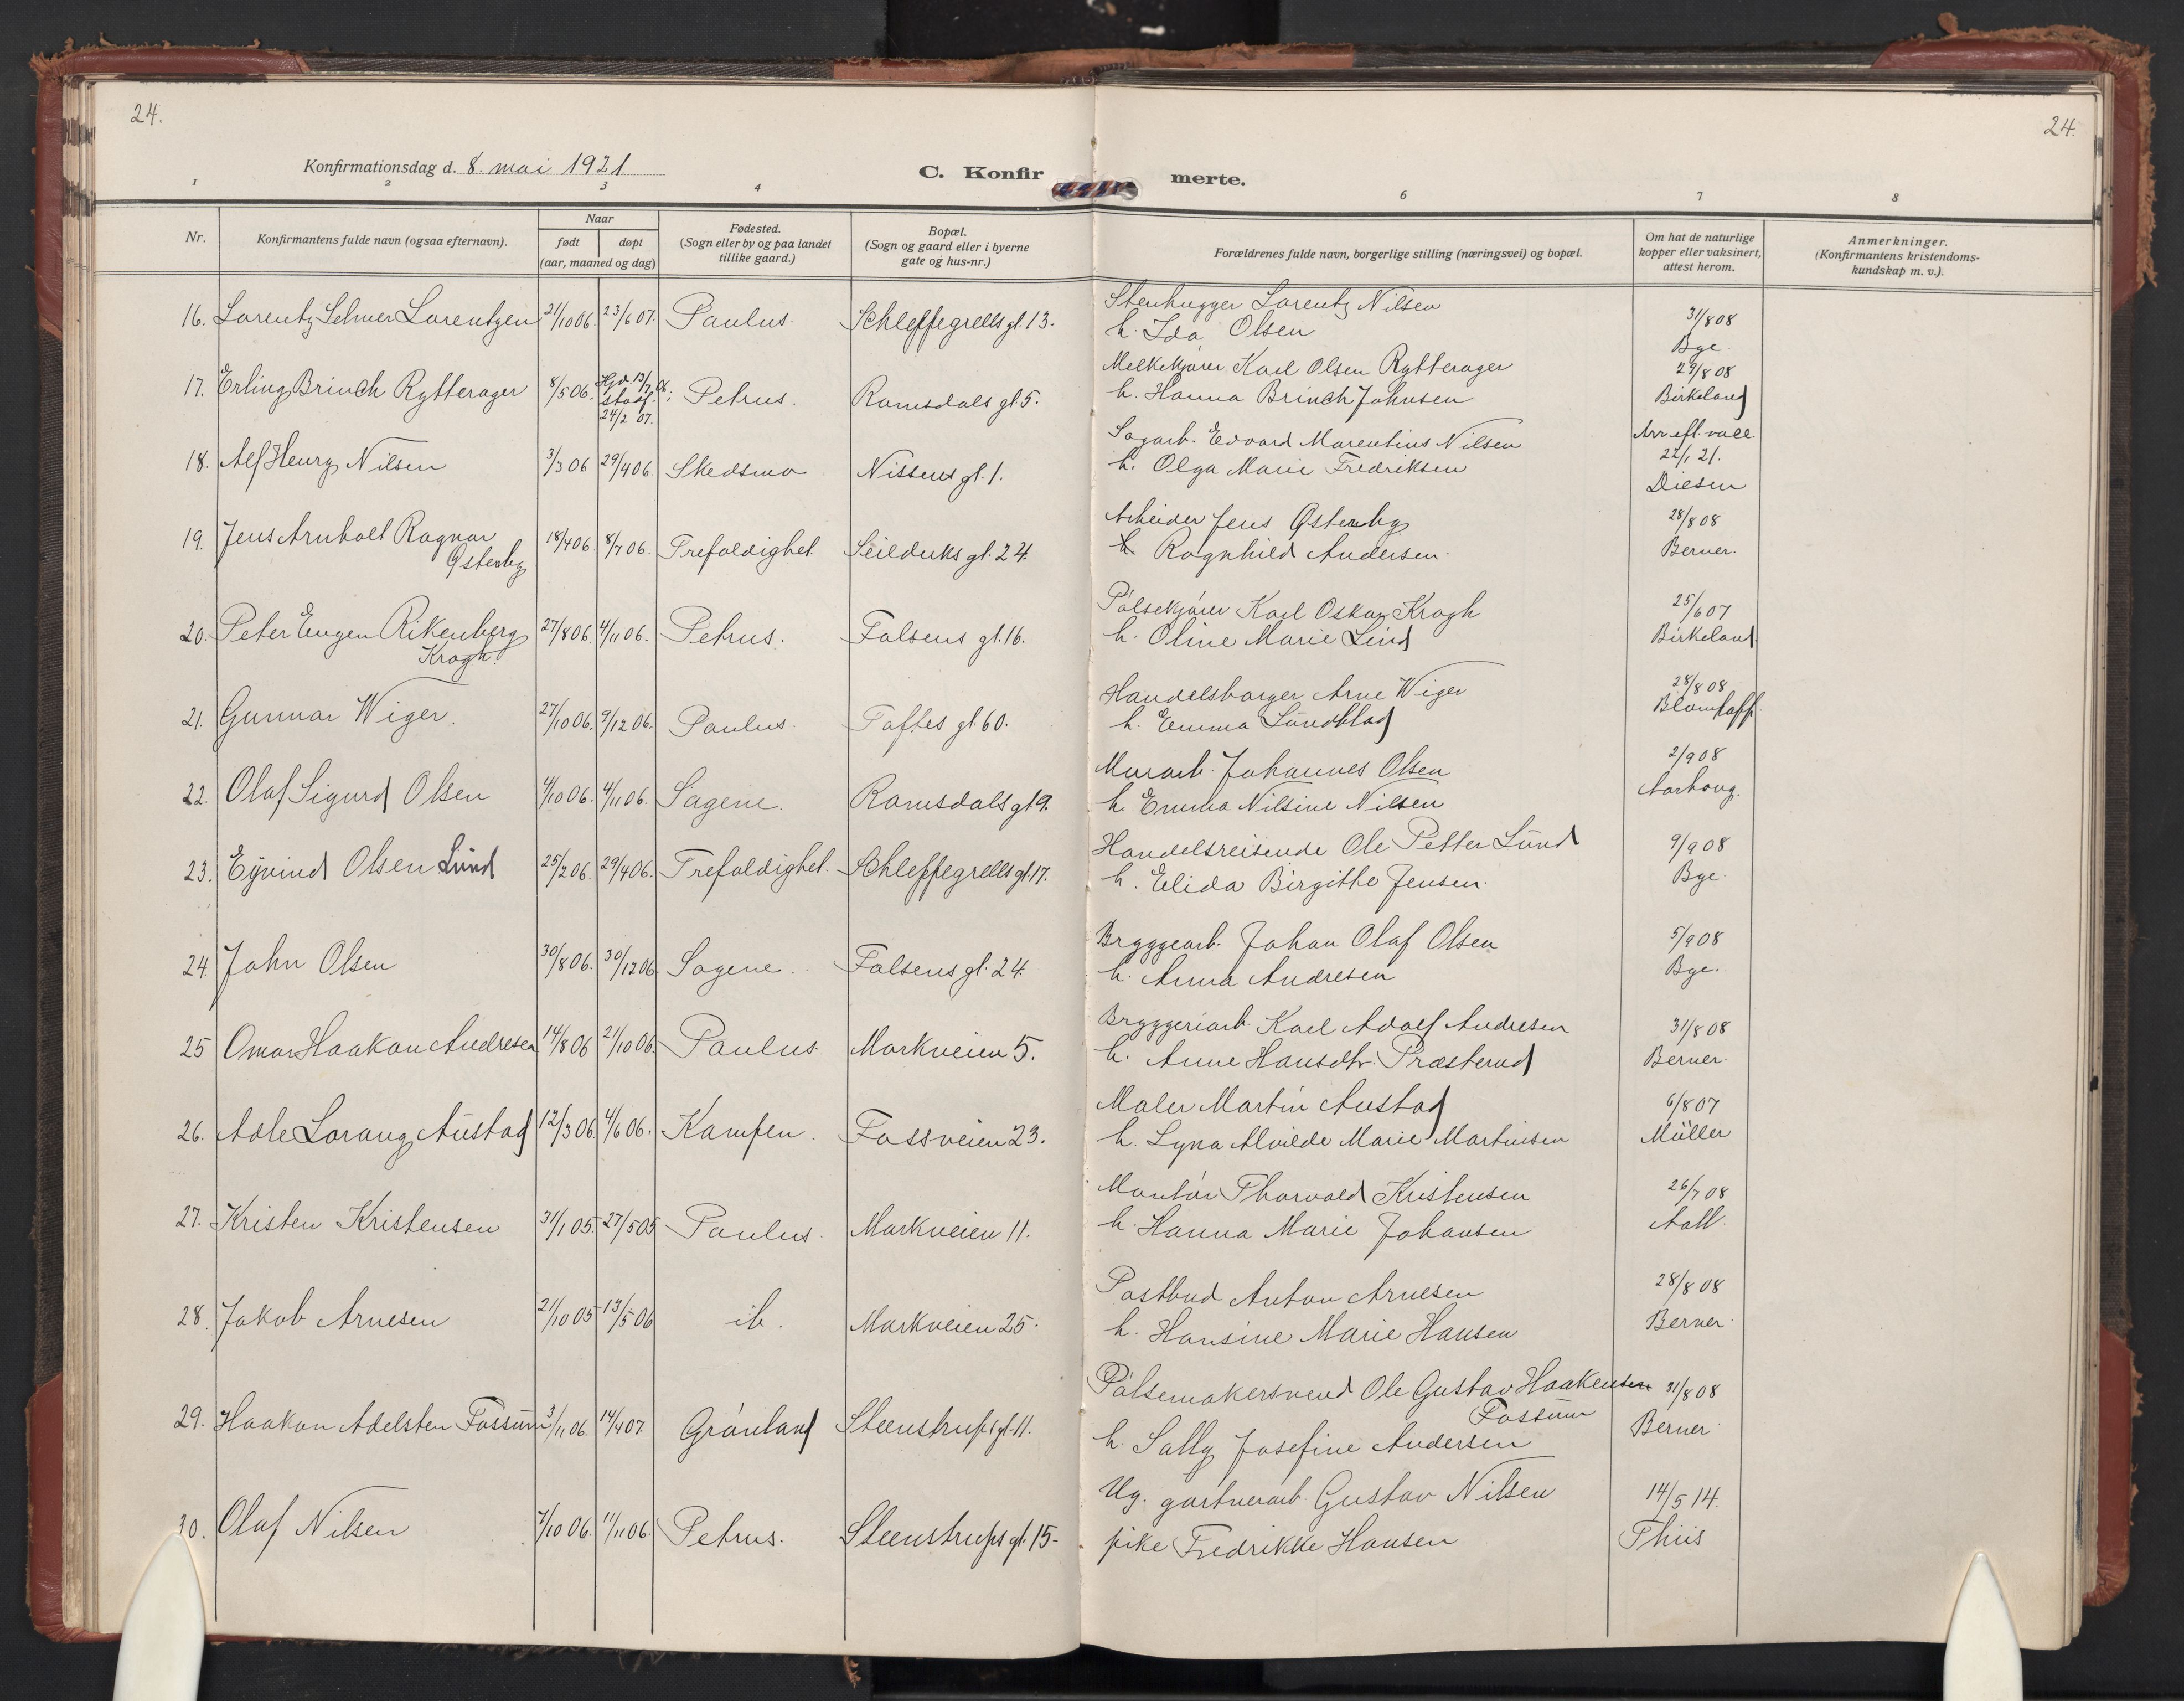 24.
24.
Konfirmationsdag d. 8. mai 1921
C. Konfirmerte.
1 2 3 4 6 7 8
Nr.
Konfirmantens fulde navn (ogsaa efternavn).
Naar
født
døpt
(aar, maaned og dag)
Fødested.
(Sogn eller by og paa landet
tillike gaard.)
Bopæl.
(Sogn og gaard eller i byerne
gate og hus-nr.)
Forældrenes fulde navn, borgerlige stilling (næringsvei) og bopæl.
Om hat de naturlige
kopper eller vaksinert,
attest herom.
Anmerkninger.
(Konfirmantens kristendoms-
kundskap m. v.).
16. Lorentz Selmer Lorentzen 21/10 06. 23/6 07. Paulus. Schleppegrells gt. 13. Stenhugger Lorentz Nilsen 31/8 08
h. Ida Olsen Bye.
17. Erling Brinch Rytterager 8/5 06. Hjd. 13/7 06; stadf. 24/2 07. Petrus. Romsdals gt. 5. Melkekjører Karl Olsen Rytterager 29/8 08
h. Hanna Brinch Johnsen Birkeland
18. Alf Henry Nilsen 3/3 06 29/4 06. Skedsmo Nissens gt. 1. Sagarb. Edvard Marentius Nilsen Arr eft. vacc.
h. Olga Marie Fredriksen 22/1 21.
Diesen
19. Jens Arnholt Ragnar 18/4 06. 8/7 06. Trefoldighet. Seilduks gt. 24. Arbeider Jens Østenby 28/8 08
Østenby h. Ragnhild Andersen. Berner.
20. Peter Eugen Rikenberg 27/8 06. 4/11 06. Petrus. Falsens gt. 16. Pølsekjører Karl Oskar Krogh 25/6 07
Krogh. h. Oline Marie Lind Birkeland
21. Gunnar Wiger. 27/10 06. 9/12 06. Paulus. Toftes gt 60. Handelsborger Arne Wiger 28/8 08
h. Emma Lundblad
22. Olaf Sigurd Olsen 4/10 06. 4/11 06. Sagene. Romsdals gt 9. Murarb. Johannes Olsen 2/9 08
h. Emma Nilsine Nilsen
23. Eyvind Olsen Lund 25/2 06. 29/4 06. Trefoldighet. Schleppegrells gt. 17. Handelsreisende Ole Petter Lund 9/9 08
h. Elida Birgithe Jensen. Bye.
24. John Olsen 30/8 06. 30/12 06. Sagene. Falsens gt. 24. Bryggearb. Johan Olaf Olsen 5/9 08
h. Anna Andresen Bye.
25 Omar Haakon Andresen 14/8 06 21/10 06. Paulus. Markveien 5. Bryggeriarb. Karl Adolf Andresen 31/8 08
h. Anne Hansdtr. Præsterud Berner.
26. Adle Lorang Austad 12/3 06. 4/6 06. Kampen. Fossveien 23. Maler Martin Austad 6/8 07
h. Lyna Alvilde Marie Martinsen Müller
27. Kristen Kristensen 31/1 05. 27/5 05 Paulus. Markveien 11. Montør Thorvald Kristensen 26/7 08
h. Hanna Marie Johansen Aall.
28. Jakob Arnesen 21/10 05 13/5 06 ib. Markveien 25. Postbud Anton Arnesen 28/8 08
h. Hansine Marie Hansen Berner.
29. Haakon Adelsten Fossum 3/11 06. 14/4 07. Grønland Steenstrups gt. 11. Pølsemakersvend Ole Gustav Haakensen 31/8 08
Fossum Berner.
h. Sally Josefine Andersen
30. Olaf Nilsen 7/10 06. 11/11 06. Petrus. Steenstrups gt. 15. Ug. gartnerarb. Gustav Nilsen 14/5 14.
pike Fredrikke Hansen Thiis